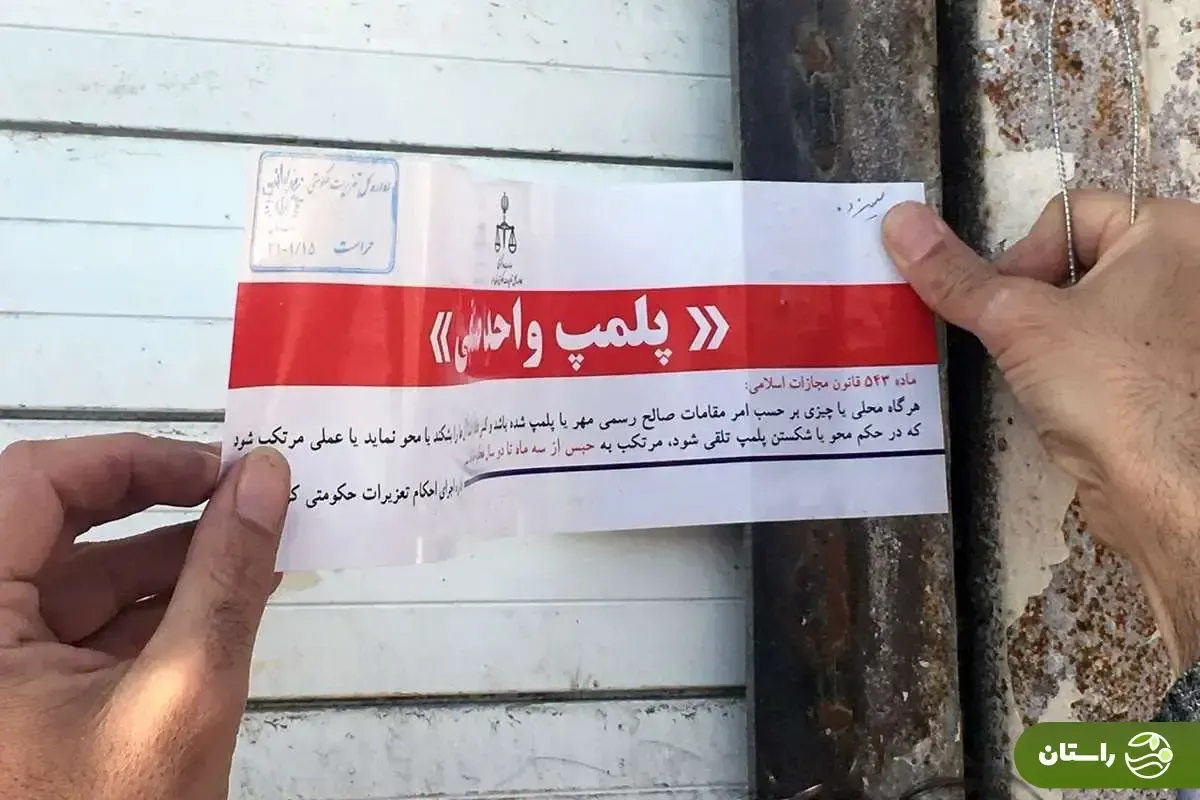 اداره کل تعزیرات حکومتی
حراست
« پلمپ واحد صنفی »
ماده ۵۴۳ قانون مجازات اسلامی:
هرگاه محلی یا چیزی بر حسب امر مقامات صالح رسمی مهر یا پلمپ شده باشد و کسی را بشکند یا محو نماید یا عملی مرتکب شود
که در حکم محو یا شکستن پلمپ تلقی شود، مرتکب به حبس از سه ماه تا دو سال
اجرای احکام تعزیرات حکومتی
راستان